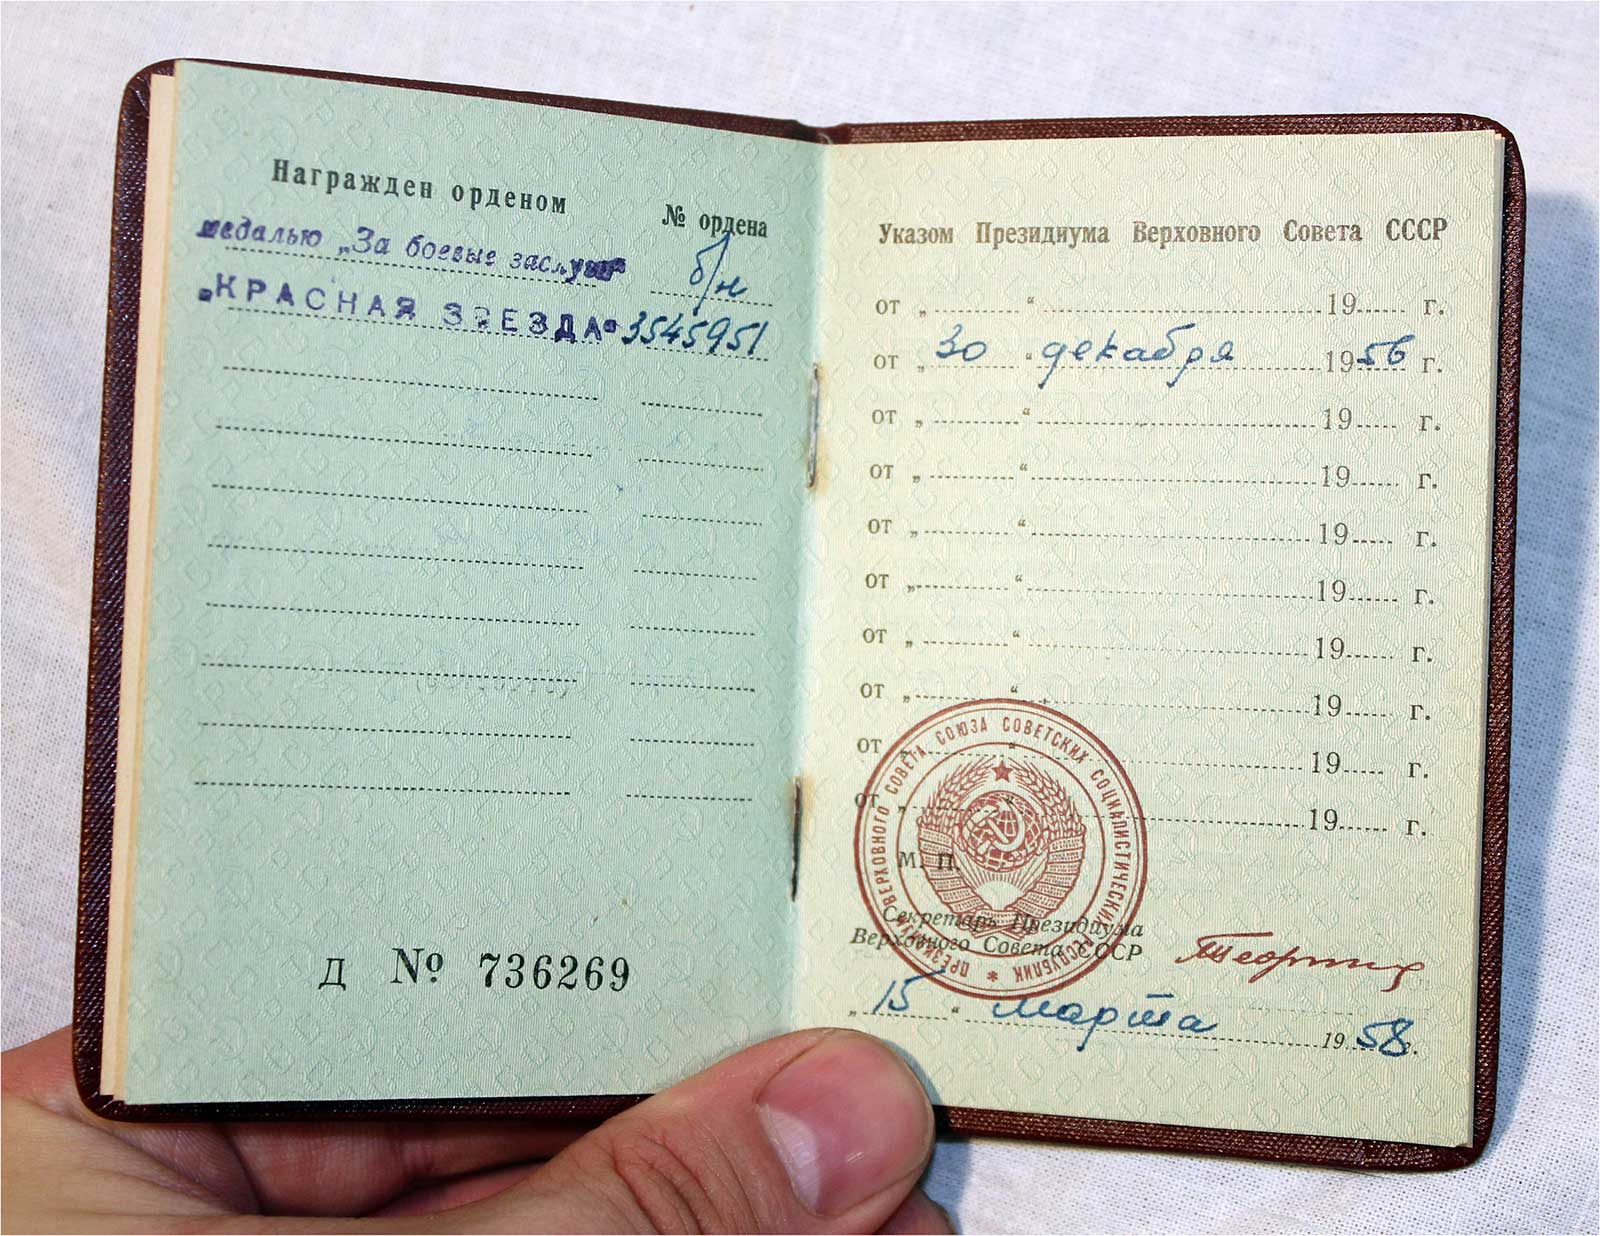 Награжден орденом
№ ордена
медалью „За боевые заслуги“
б/н
„КРАСНАЯ ЗВЕЗДА“ 3545951
Д № 736269
Указом Президиума Верховного Совета СССР
от „ “ 19 г.
от „ 30 “ декабря 1956 г.
от „ “ 19 г.
от „ “ 19 г.
от „ “ 19 г.
от „ “ 19 г.
от „ “ 19 г.
от „ “ 19 г.
от „ “ 19 г.
от „ “ 19 г.
ПРЕЗИДИУМ ВЕРХОВНОГО СОВЕТА СОЮЗА СОВЕТСКИХ СОЦИАЛИСТИЧЕСКИХ РЕСПУБЛИК *
М. П.
Секретарь Президиума
Верховного Совета СССР
„ 15 “ марта 1958 г.